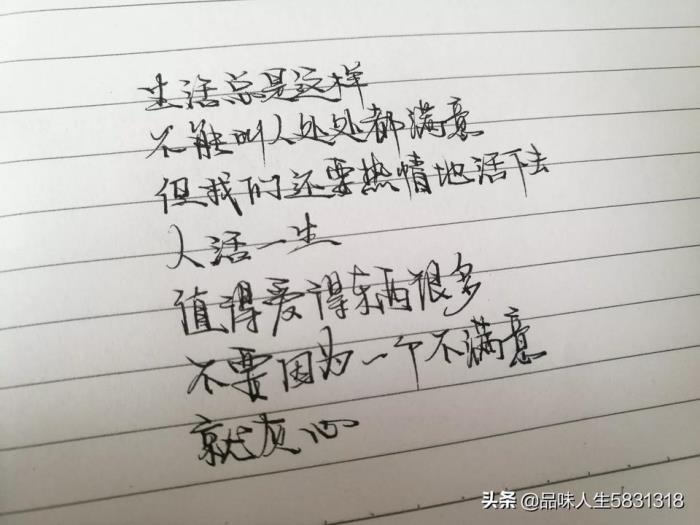 生活总是这样
不能叫人处处都满意
但我们还要热情地活下去
人活一生
值得爱得东西很多
不要因为一个不满意
就灰心
头条 @品味人生5831318